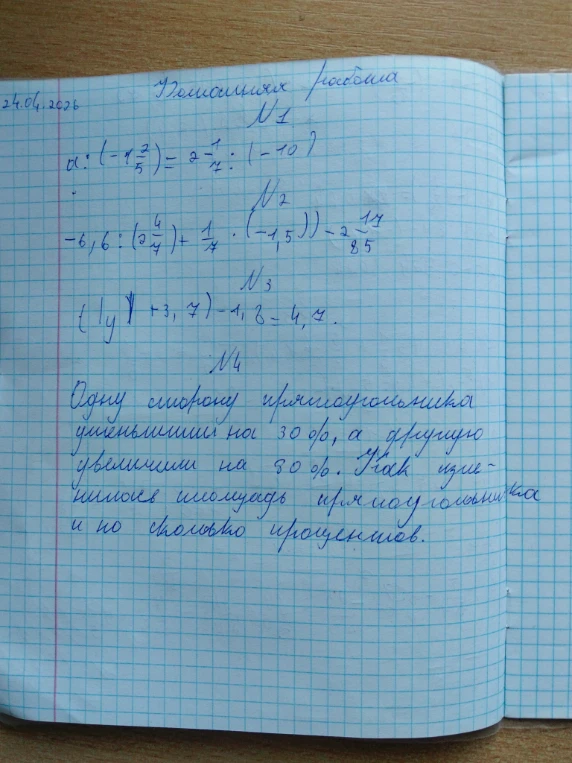 24.04.2026
Домашняя работа
N1
a:(-1 2/5)=2 1/7:(-10)
N2
-6,6:(2 4/7)+1/7·(-1,5))-2 17/85
N3
(|y|+3,7)-1,8=4,7.
N4
Одну сторону прямоугольника
уменьшили на 30%, а другую
увеличили на 30%. Как изме-
нилось площадь прямоугольника
и но сколько процентов.